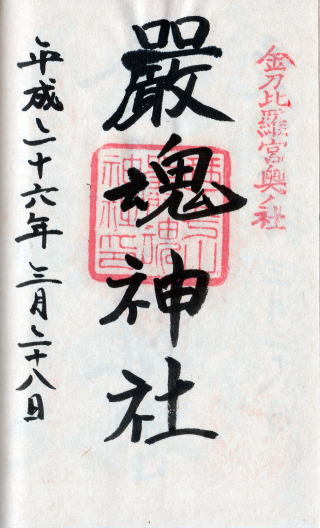 金刀比羅宮奥ノ社
嚴魂神社
平成二十六年三月二十八日